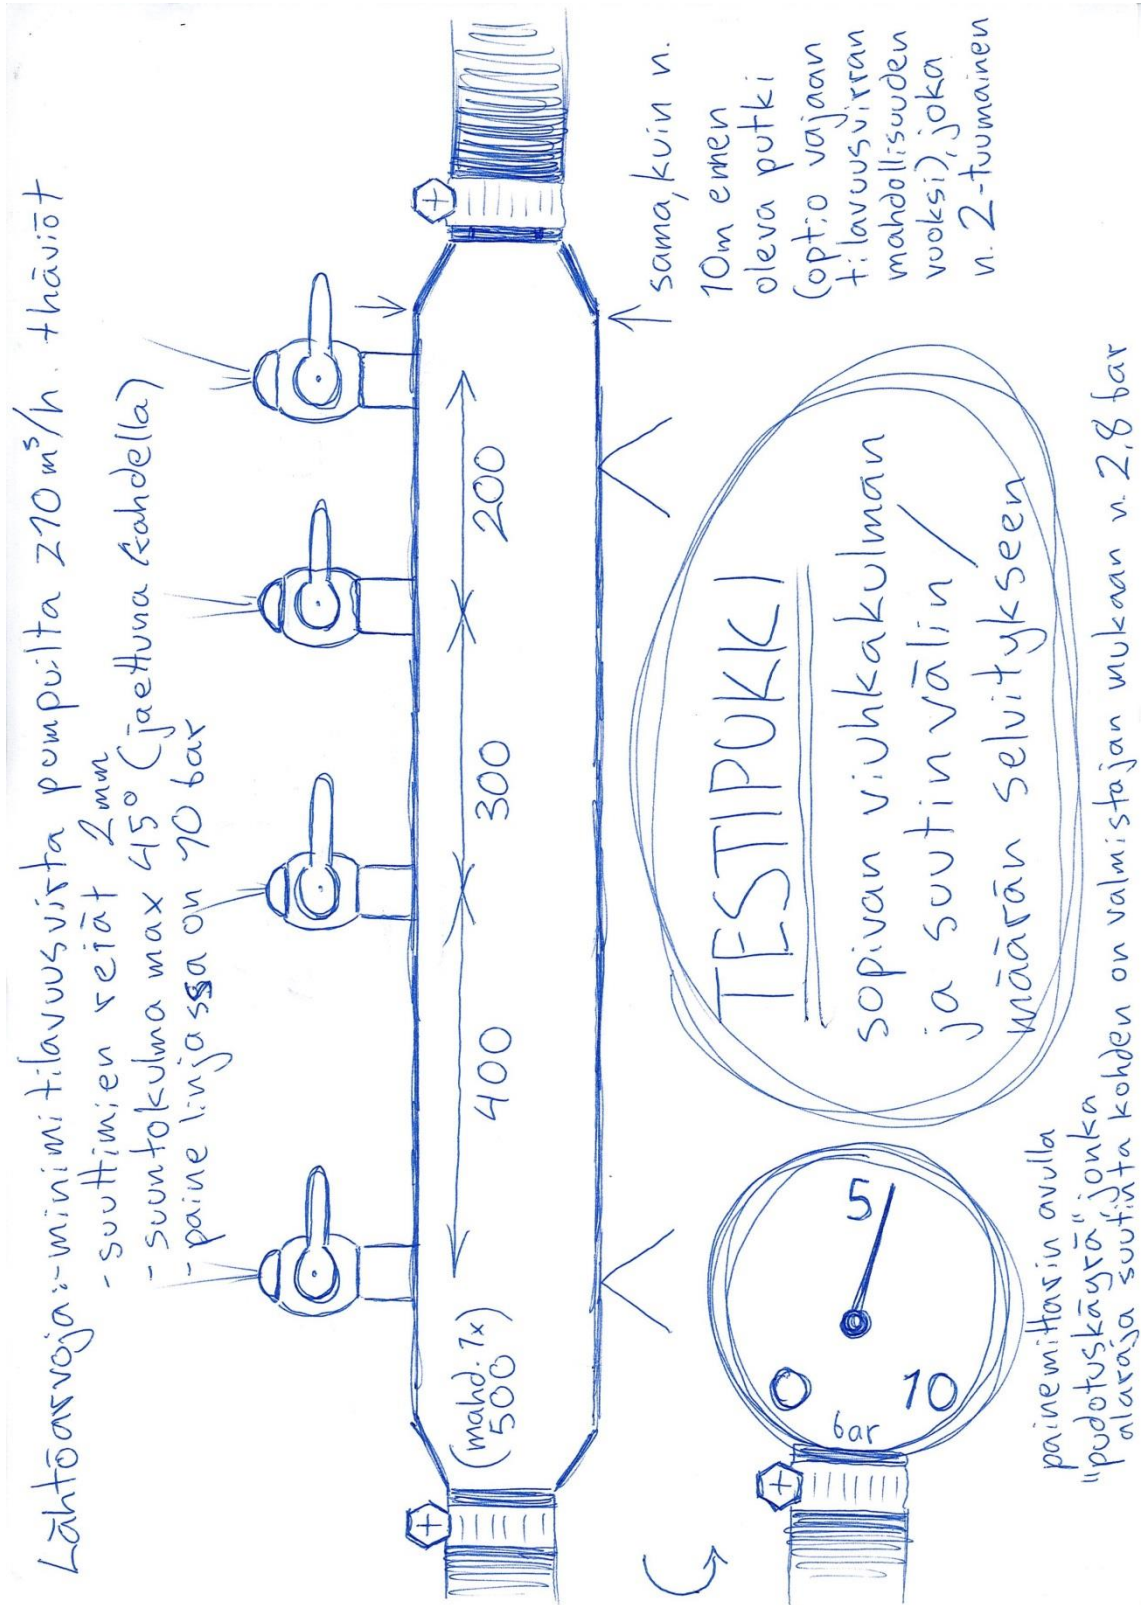 Lähtöarvoja:-minimitilavuusvirta pumpuilta 210 m³/h. + häviöt
- suuttimien reiät 2mm
- suuntokulma max 45° (jaettuna kahdella)
- paine linjassa on 10 bar
(mahd. 1x)
500
400
300
200
sama, kuin n.
10m ennen
oleva putki
(optio vajaan
tilavuusvirran
mahdollisuuden
vuoksi), joka
n. 2-tuumainen
TESTIPUKKI
sopivan viuhkakulman
ja suutinvälin /
määrän selvitykseen
0
5
10
bar
painemittarin avulla
"pudotuskäyrä" jonka
alaraja suutinta kohden on valmistajan mukaan n. 2,8 bar